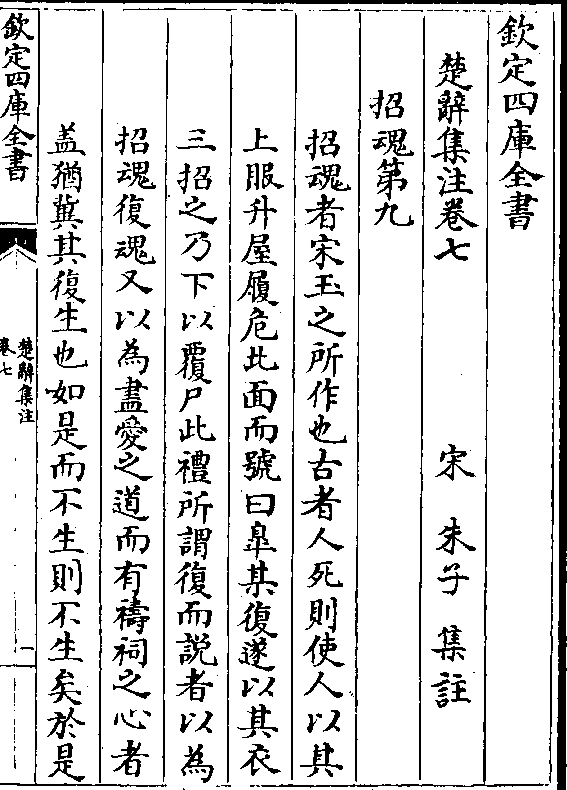 欽定四庫全書
楚辭集注卷七
宋 朱子 集註
招魂第九
招魂者宋玉之所作也古者人死則使人以其
上服升屋履危北面而號曰臯某復遂以其衣
三招之乃下以覆尸此禮所謂復而説者以為
招魂復魂又以為盡愛之道而有禱祠之心者
盖猶冀其復生也如是而不生則不生矣於是
欽定四庫全書
楚辭集注
卷七
一